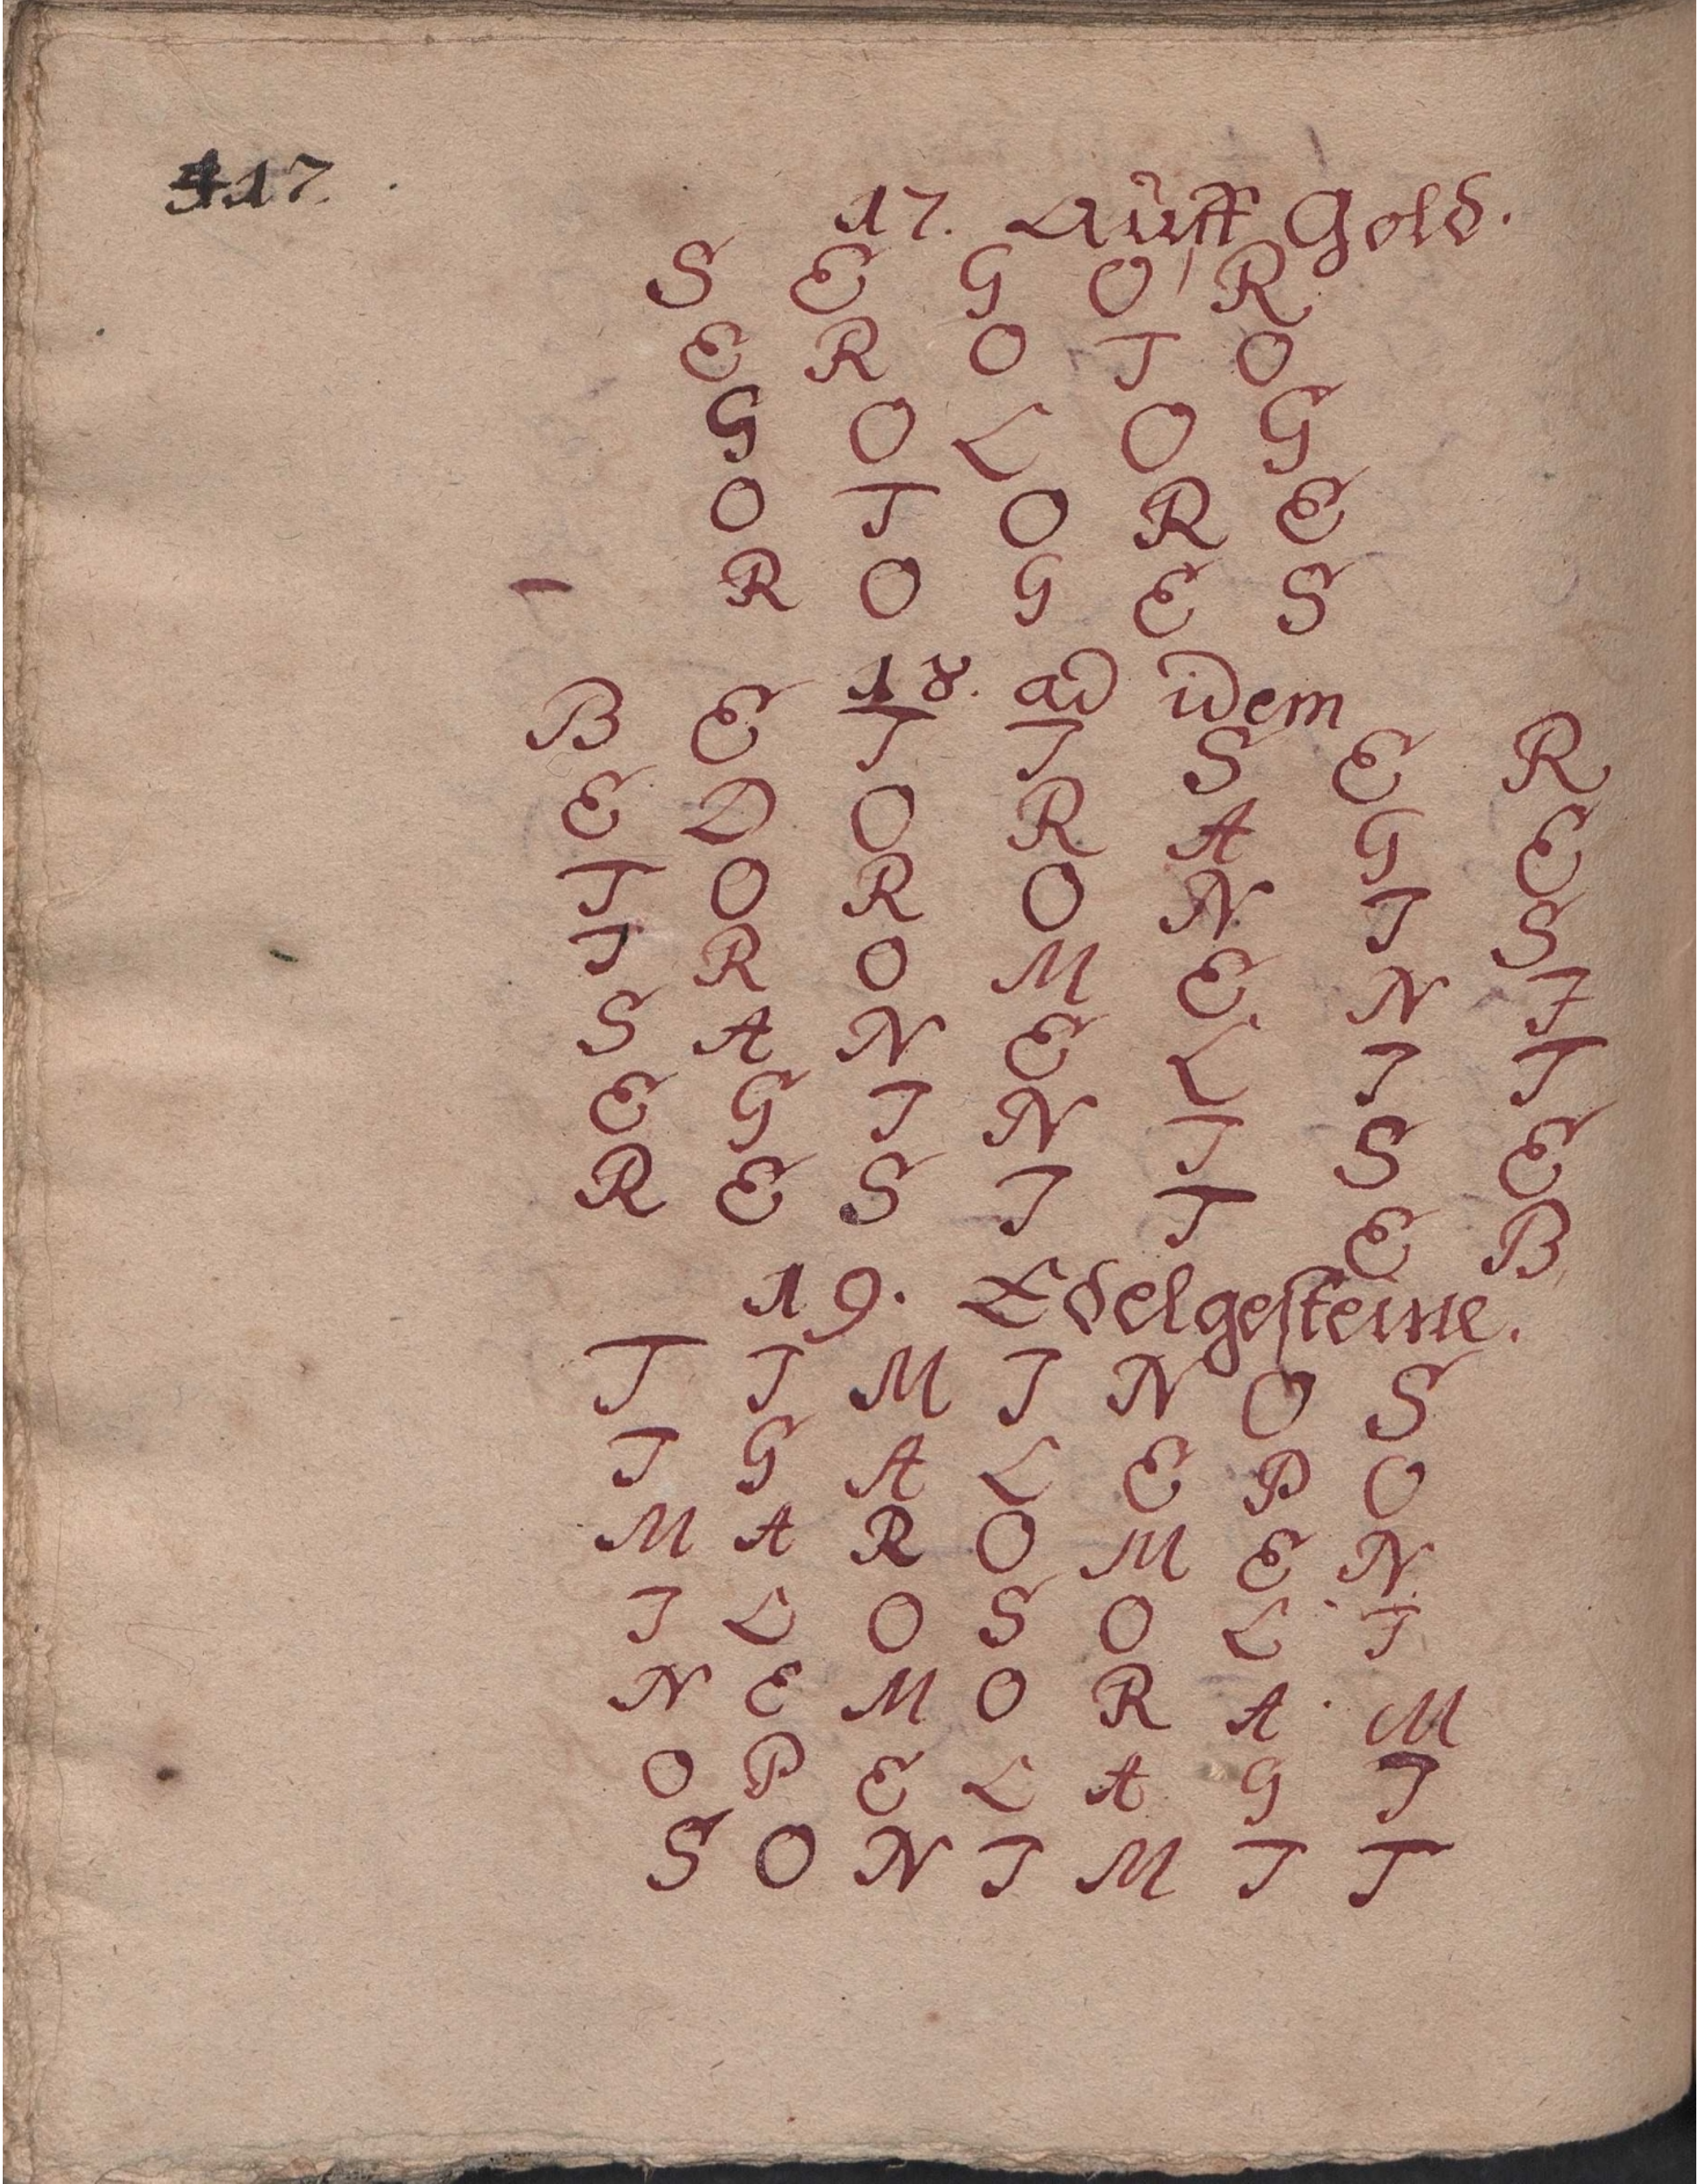 117.
17. Auff Gold.
S E G O R
E R O T O
G O L O G
O T O R E
R O G E S
18. ad idem
B E T I S E R
E D O R A G E
T O R O N I S
I R O M E N I
S A N E L I T
E G I N I S E
R E S I T E B
19. Edelgesteine.
T I M I N O S
I G A L E P O
M A R O M E N
I L O S O L I
N E M O R A M
O P E L A G I
S O N I M I T